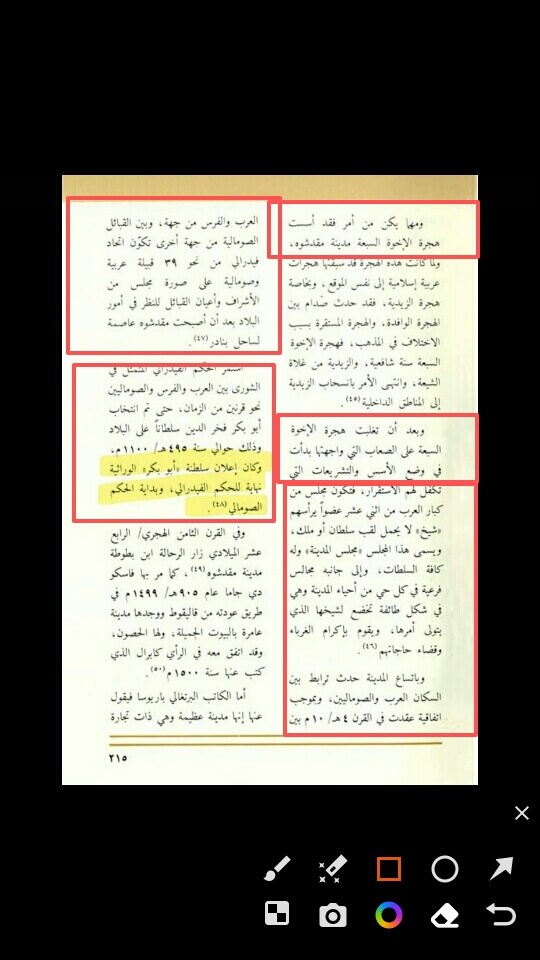 ومهما يكن من أمر فقد أسست
هجرة الإخوة السبعة مدينة مقدشوه،
ولما كانت هذه الهجرة قد سبقتها هجرات
عربية إسلامية إلى نفس الموقع، وبخاصة
هجرة الزيدية، فقد حدث صدام بين
الهجرة الوافدة، والهجرة المستقرة بسبب
الاختلاف في المذهب، فهجرة الإخوة
السبعة سنة شافعية، والزيدية من غلاة
الشيعة، وانتهى الأمر بانسحاب الزيدية
إلى المناطق الداخلية(٤٥).
وبعد أن تغلبت هجرة الإخوة
السبعة على الصعاب التي واجهتها بدأت
في وضع الأسس والتشريعات التي
تكفل لهم الاستقرار، فتكون مجلس من
كبار العرب من اثني عشر عضواً يرأسهم
«شيخ» لا يحمل لقب سلطان أو ملك،
ويسمى هذا المجلس «مجلس المدينة» وله
كافة السلطات، وإلى جانبه مجالس
فرعية في كل حي من أحياء المدينة وهي
في شكل طائفة تخضع لشيخها الذي
يتولى أمرها، ويقوم بإكرام الغرباء
وقضاء حاجاتهم(٤٦).
وباتساع المدينة حدث ترابط بين
السكان العرب والصوماليين، وبموجب
اتفاقية عقدت في القرن ٤هـ/ ١٠م بين
العرب والفرس من جهة، وبين القبائل
الصومالية من جهة أخرى تكوّن اتحاد
فيدرالي من نحو ٣٩ قبيلة عربية
وصومالية على صورة مجلس من
الأشراف وأعيان القبائل للنظر في أمور
البلاد بعد أن أصبحت مقدشوه عاصمة
لساحل بنادر(٤٧).
استمر الحكم الفيدرالي المتمثل في
الشورى بين العرب والفرس والصوماليين
نحو قرنين من الزمان، حتى تم انتخاب
أبو بكر فخر الدين سلطاناً على البلاد
وذلك حوالي سنة ٤٩٥هـ/ ١١٠٠م،
وكان إعلان سلطنة «أبو بكر» الوراثية
نهاية للحكم الفيدرالي، وبداية الحكم
الصومالي(٤٨).
وفي القرن الثامن الهجري/ الرابع
عشر الميلادي زار الرحالة ابن بطوطة
مدينة مقدشوه(٤٩)، كما مر بها فاسكو
دي جاما عام ٩٠٥هـ/ ١٤٩٩م في
طريق عودته من قاليقوط ووجدها مدينة
عامرة بالبيوت الجميلة، ولها الحصون،
وقد اتفق معه في الرأي كابرال الذي
كتب عنها سنة ١٥٠٠م(٥٠).
أما الكاتب البرتغالي باربوسا فيقول
عنها إنها مدينة عظيمة وهي ذات تجارة
٢١٥